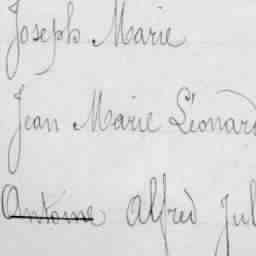 Joseph Marie
Jean Marie Léonard
Antoine Alfred Jul